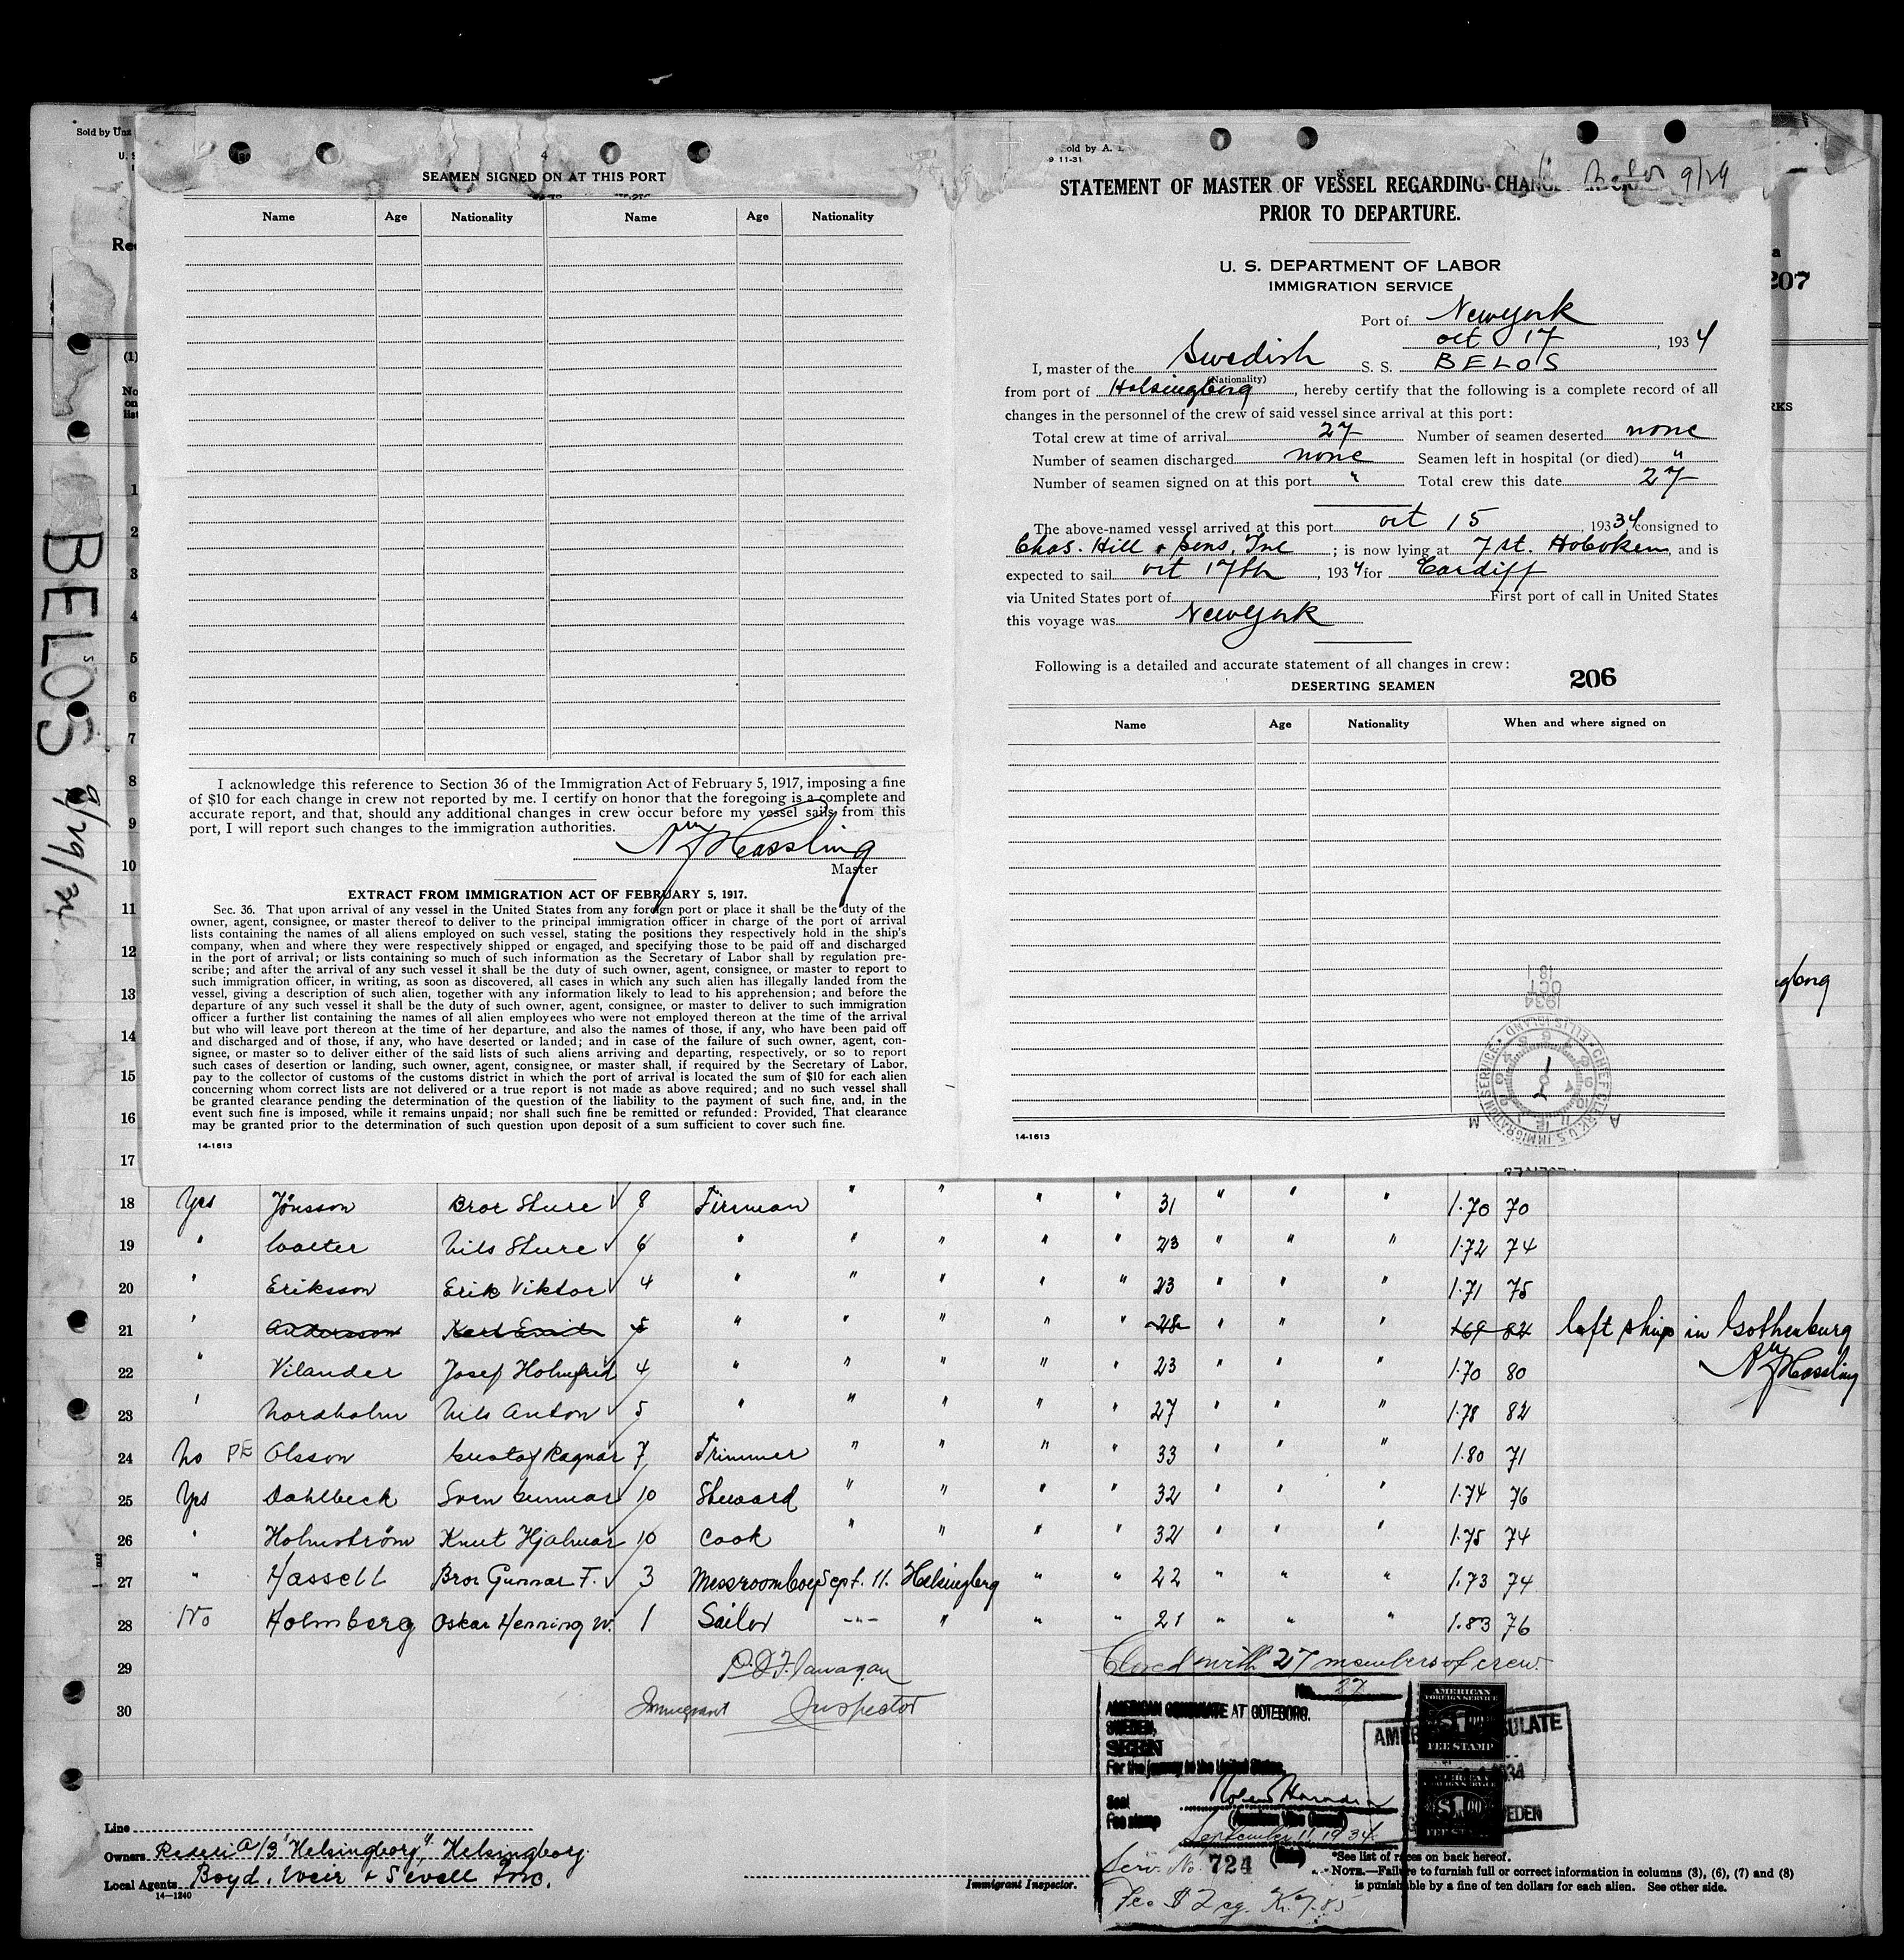 Sold by
4
SEAMEN SIGNED ON AT THIS PORT
Name Age Nationality Name Age Nationality
I acknowledge this reference to Section 36 of the Immigration Act of February 5, 1917, imposing a fine
of $10 for each change in crew not reported by me. I certify on honor that the foregoing is a complete and
accurate report, and that, should any additional changes in crew occur before my vessel sails from this
port, I will report such changes to the immigration authorities.
Hassling
Master
EXTRACT FROM IMMIGRATION ACT OF FEBRUARY 5, 1917.
Sec. 36. That upon arrival of any vessel in the United States from any foreign port or place it shall be the duty of the
owner, agent, consignee, or master thereof to deliver to the principal immigration officer in charge of the port of arrival
lists containing the names of all aliens employed on such vessel, stating the positions they respectively hold in the ship's
company, when and where they were respectively shipped or engaged, and specifying those to be paid off and discharged
in the port of arrival; or lists containing so much of such information as the Secretary of Labor shall by regulation pre-
scribe; and after the arrival of any such vessel it shall be the duty of such owner, agent, consignee, or master to report to
such immigration officer, in writing, as soon as discovered, all cases in which any such alien has illegally landed from the
vessel, giving a description of such alien, together with any information likely to lead to his apprehension; and before the
departure of any such vessel it shall be the duty of such owner, agent, consignee, or master to deliver to such immigration
officer a further list containing the names of all alien employees who were not employed thereon at the time of the arrival
but who will leave port thereon at the time of her departure, and also the names of those, if any, who have been paid off
and discharged and of those, if any, who have deserted or landed; and in case of the failure of such owner, agent, con-
signee, or master so to deliver either of the said lists of such aliens arriving and departing, respectively, or so to report
such cases of desertion or landing, such owner, agent, consignee, or master shall, if required by the Secretary of Labor,
pay to the collector of customs of the customs district in which the port of arrival is located the sum of $10 for each alien
concerning whom correct lists are not delivered or a true report is not made as above required; and no such vessel shall
be granted clearance pending the determination of the question of the liability to the payment of such fine, and, in the
event such fine is imposed, while it remains unpaid; nor shall such fine be remitted or refunded: Provided, That clearance
may be granted prior to the determination of such question upon deposit of a sum sufficient to cover such fine.
14-1613
old by A.
9 11-31
9/29
STATEMENT OF MASTER OF VESSEL REGARDING CHANG
PRIOR TO DEPARTURE.
U. S. DEPARTMENT OF LABOR
IMMIGRATION SERVICE
Port of New York
oct 17, 1934
I, master of the Swedish S. S. BELOS
(Nationality)
from port of Helsingborg, hereby certify that the following is a complete record of all
changes in the personnel of the crew of said vessel since arrival at this port:
Total crew at time of arrival 27 Number of seamen deserted none
Number of seamen discharged none Seamen left in hospital (or died) "
Number of seamen signed on at this port " Total crew this date 27
The above-named vessel arrived at this port oct 15, 1934, consigned to
Chas. Hill & Sons, Inc; is now lying at 7 st. Hoboken, and is
expected to sail oct 17th, 1934 for Cardiff
via United States port of First port of call in United States
this voyage was New York
Following is a detailed and accurate statement of all changes in crew:
DESERTING SEAMEN 206
Name Age Nationality When and where signed on
1934
OCT
18
CHIEF CLERK, U.S. IMMIGRATION SERVICE · ELLIS ISLAND
14-1613
207
RKS
BELOS 9/29/34
(1)
No
on
list
1
2
3
4
5
6
7
8
9
10
11
12
13
14
15
16
17
18 Yes Jönsson Bror Sture 8 Firman " " " " 31 " " " 1.70 70
19 " Walter Nils Sture 6 " " " " " 23 " " " 1.72 74
20 " Eriksson Erik Viktor 4 " " " " " 23 " " " 1.71 75
21 " Andersson Karl 5 " " " " " 28 " " " 169 82 left ship in Gothenburg
22 " Vilander Josef Holmfrid 4 " " " " " 23 " " " 1.70 80 Hassling
23 " Nordholm Nils Anton 5 " " " " " 27 " " " 1.78 82
24 No PE Olsson Gustaf Ragnar 7 Trimmer " " " " 33 " " " 1.80 71
25 Yes Dahlbeck Sven Gunnar 10 Steward " " " " 32 " " " 1.74 76
26 " Holmström Knut Hjalmar 10 Cook " " " " 32 " " " 1.75 74
27 " Hassell Bror Gunnar F. 3 Messroomboy Sept. 11. Helsingborg " " 22 " " " 1.73 74
28 No Holmberg Oskar Henning W. 1 Sailor -"- " " " 21 " " " 1.83 76
29 Flanagan Closed with 27 members of crew.
30 Immigrant Inspector
No. 27
AMERICAN CONSULATE AT GOTEBORG,
SWEDEN,
SEEN
For the journey to the United States,
Seal
(American Vice Consul)
Fee stamp September 11, 1934
Serv. No. 724
Fee $2 eq. Kr. 7.85
AMERICAN
FOREIGN SERVICE
$1.00
FEE STAMP
$1.00
FEE STAMP
Line
Owners Rederi A/B "Helsingborg", Helsingborg
Local Agents Boyd, Weir & Sewell Inc.
14-1240
Immigrant Inspector.
*See list of races on back hereof.
NOTE.—Failure to furnish full or correct information in columns (3), (6), (7) and (8)
is punishable by a fine of ten dollars for each alien. See other side.